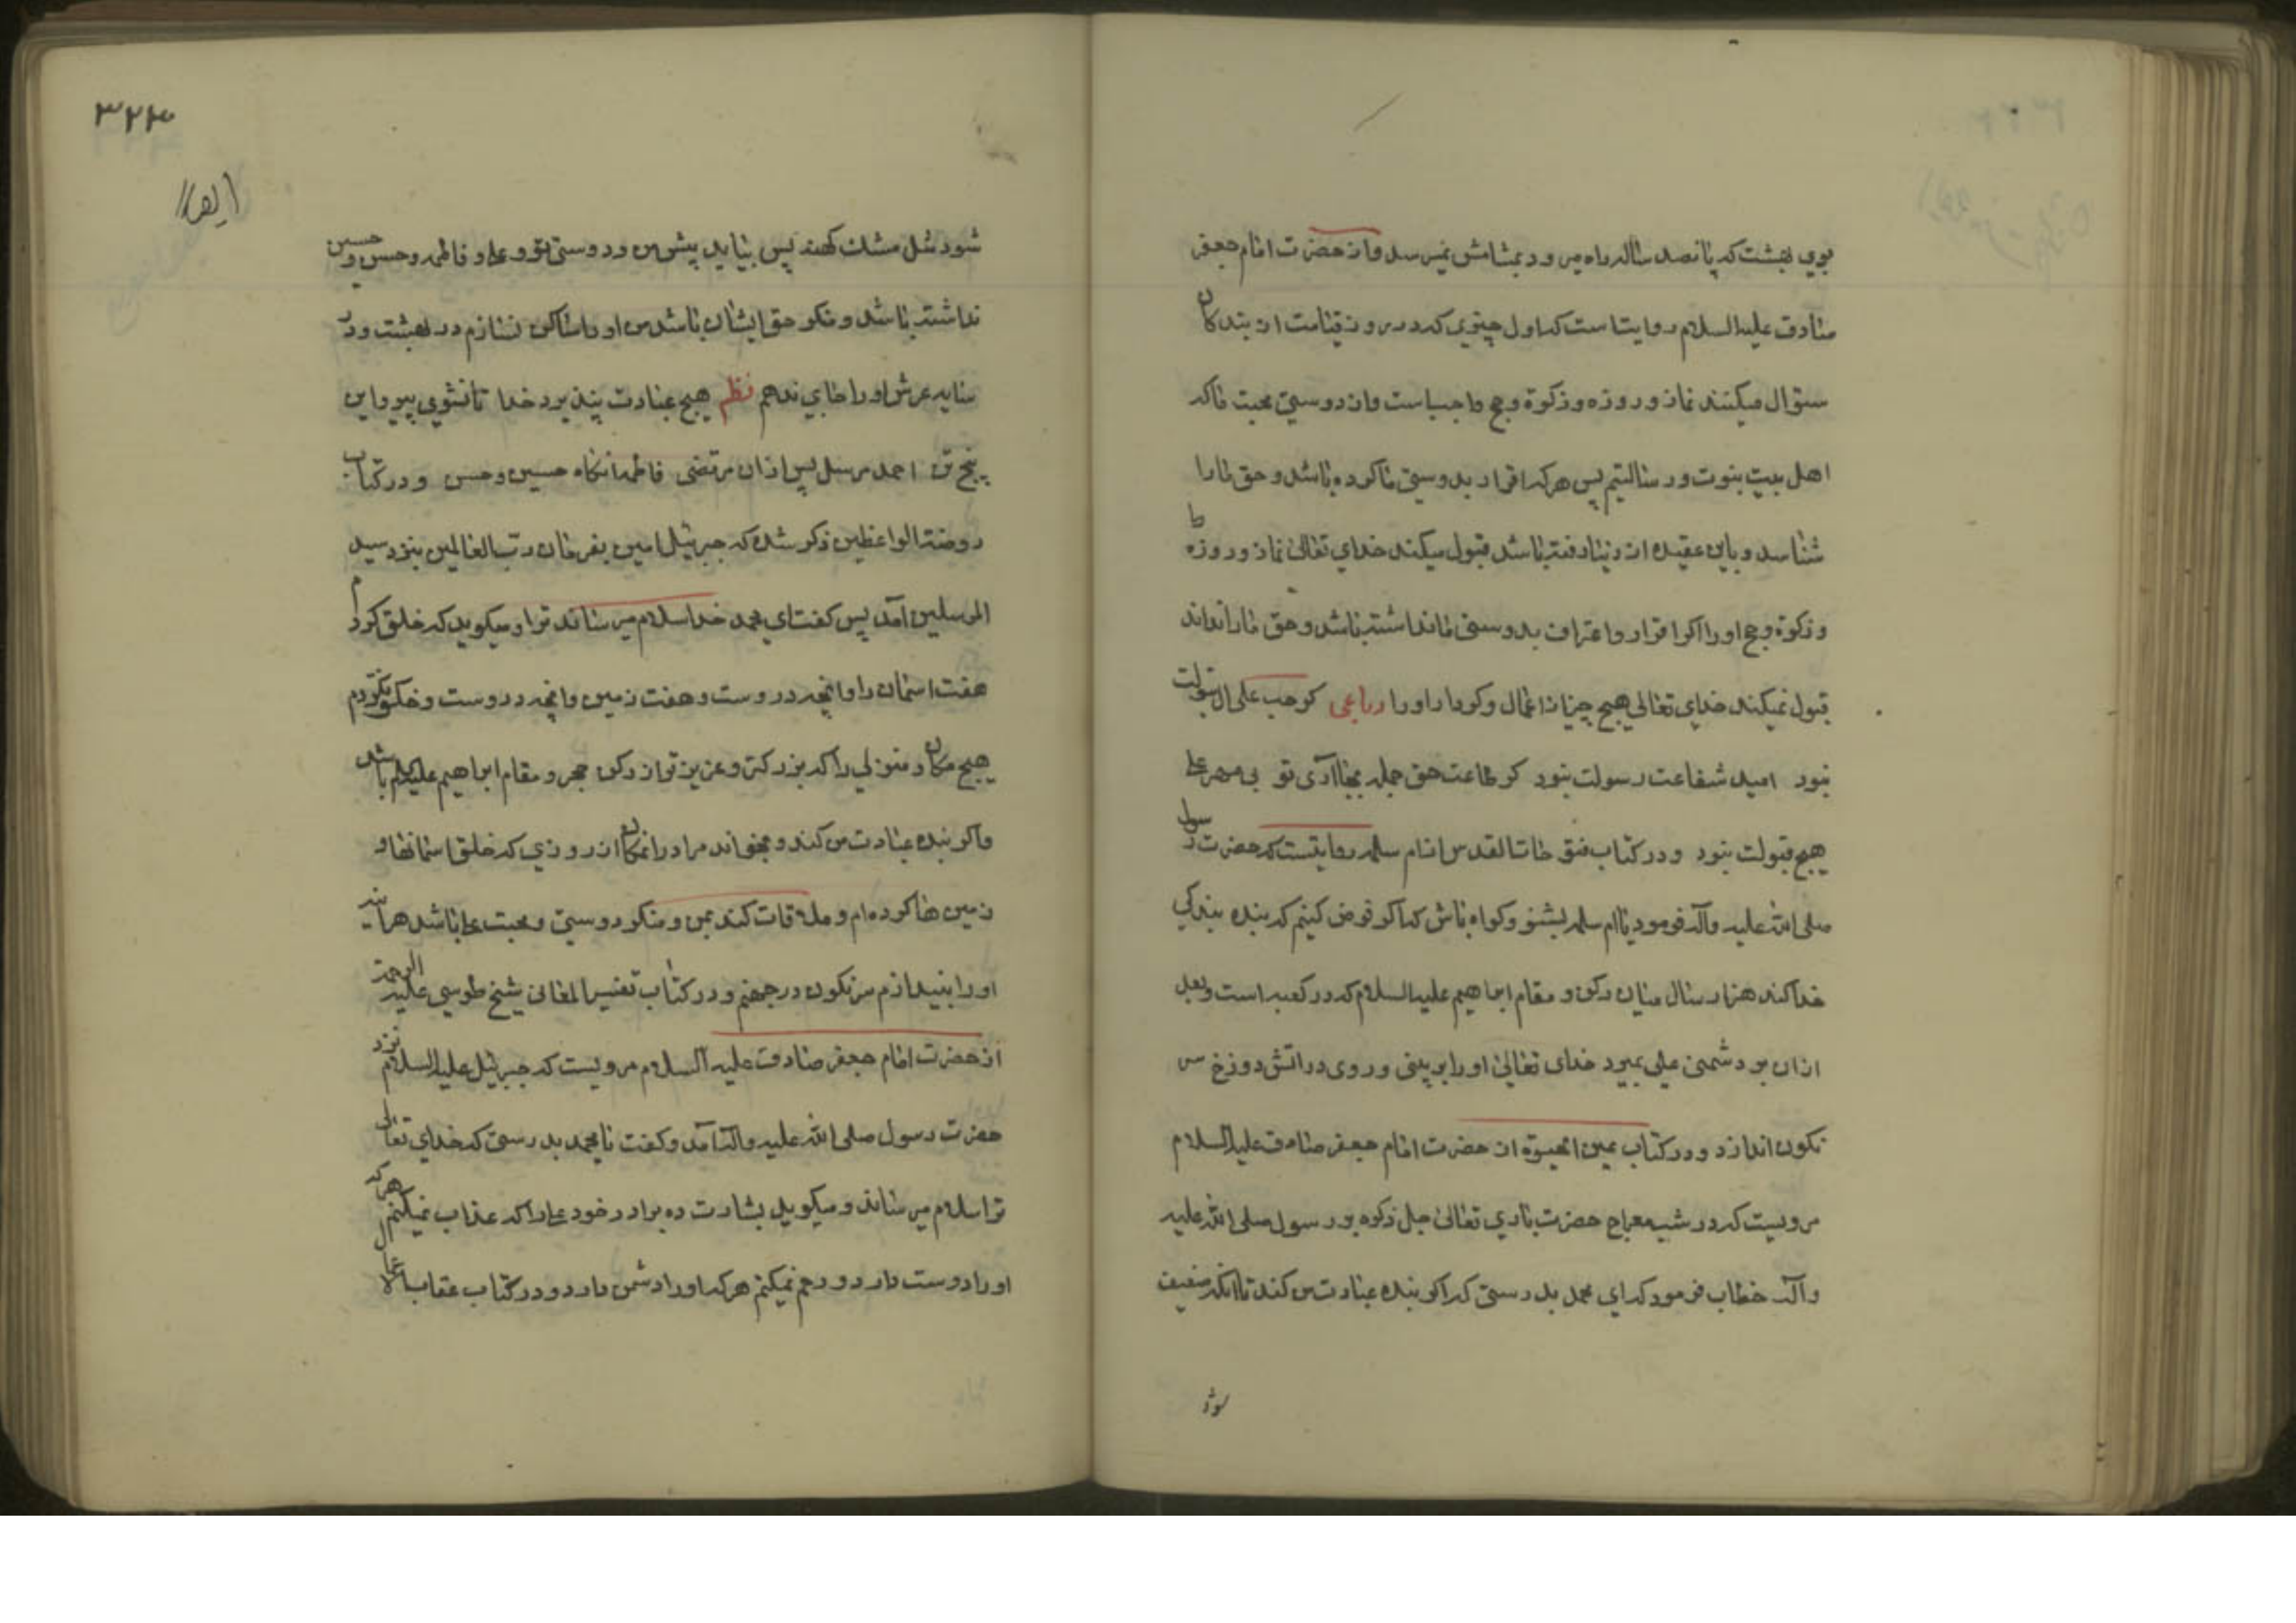 بوی بهشت که پانصد ساله راه میرود بمشامش نمیرسد و از حضرت امام جعفر
صادق علیه السلام روایتست که اول چیزی که در روز قیامت از بندکان
سئوال میکنند نماز و روزه و زکوة و حج واجب است و از دوستی محبت ما که
اهل بیت نبوت و رسالتیم پس هر که اقرار بدوستی ما کرده باشد و حق ما را
شناسد و باین عقیده از دنیا رفته باشد قبول میکند خدای تعالی نماز و روزه
و زکوة و حج او را اکر اقرار و اعتراف بدوستی ما نداشته باشد و حق ما را نداند
قبول نمیکند خدای تعالی هیچ چیز از اعمال و کردار او را رباعی کر حب علی و آل بتولت
نبود امید شفاعت رسولت نبود کر طاعت حق جمله بجا آری تو بی مهر علی
هیچ قبولت نبود و در کتاب از ام سلمه روایتست که حضرت رسول
صلی الله علیه وآله فرمود یا ام سلمه بشنو و کواه باش که اکر فرض کنیم که بنده بندکی
خدا کند هزار سال میان رکن و مقام ابراهیم علیه السلام که در کعبه است و بعد
از آن بر دشمنی علی بمیرد خدای تعالی او را بر بینی و روی در آتش دوزخ سر
نکون اندازد و در کتاب عین الحیوة از حضرت امام جعفر صادق علیه السلام
مرویست که در شب معراج حضرت باری تعالی جل ذکره بر رسول صلی الله علیه
وآله خطاب فرمود که ای محمد بدرستی که اکر بنده عبادت من کند تا آنکه ضعیف
شود
۳۲۳
شود مثل مشک کهنه پس بیاید پیش من و دوستی تو و علی و فاطمه و حسن و حسین
نداشته باشد و منکر حق ایشان باشد من او را ساکن نسازم در بهشت و در
سایه عرش او را جای ندهم نظم هیچ عبادت نپذیرد خدا تا نشوی پیرو این
پنج تن احمد مرسل پس از آن مرتضی فاطمه آنکاه حسین و حسن و در کتاب
روضة الواعظین ذکر شده که جبرئیل امین بفرمان رب العالمین بنزد سید
المرسلین آمد پس کفت ای محمد خدا سلام میرساند ترا و میکوید که خلق کردم
هفت آسمان را و آنچه در اوست و هفت زمین و آنچه در اوست و خلق نکردم
هیچ مکان و منزلی را که بزرکتر و عزیزتر از رکن حجر و مقام ابراهیم علیه السلام باشد
و اکر بنده عبادت من کند و بخواند مرا در آنمکان از روزی که خلق آسمانها و
زمین ها کرده ام و ملاقات کند بمن و منکر دوستی و محبت علی باشد هر آینه
او را بیندازم سرنکون در جهنم و در کتاب تفسیر المعانی شیخ طوسی علیه الرحمة
از حضرت امام جعفر صادق علیه السلام مرویست که جبرئیل علیه السلام نزد
حضرت رسول صلی الله علیه وآله آمد و کفت یا محمد بدرستی که خدای تعالی
ترا سلام میرساند و میکوید بشارت ده برادر خود علی را که عذاب نمیکنم هر که
او را دوست دارد و رحم نمیکنم هر که او را دشمن دارد و در کتاب عقاب الاعمال